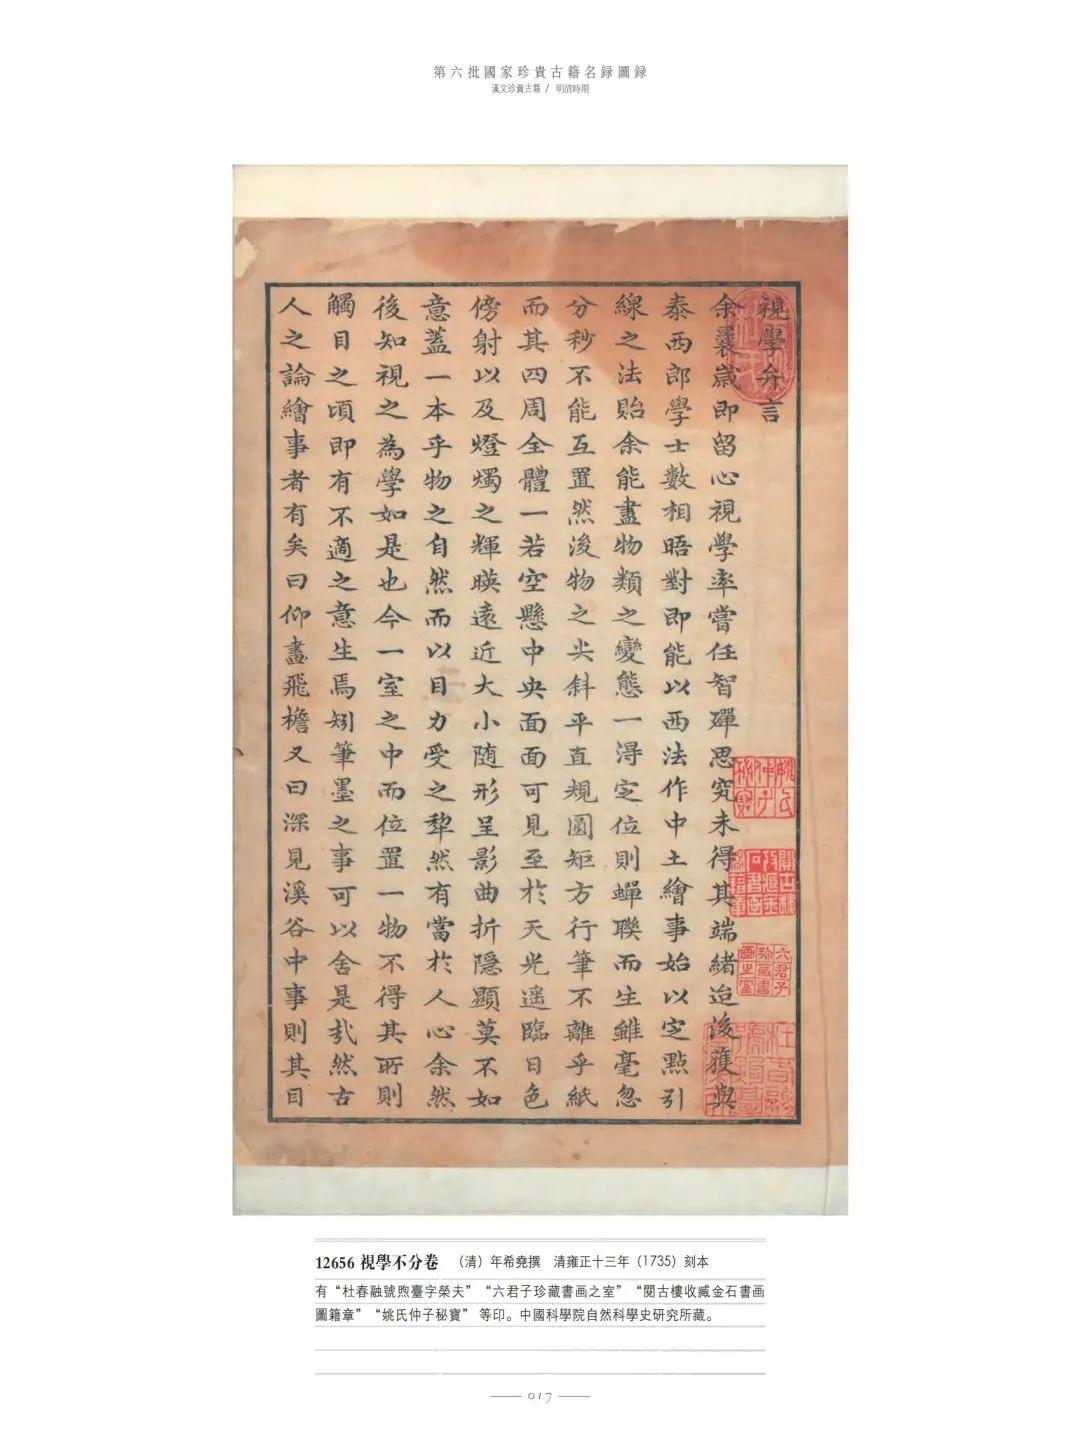 第六批國家珍貴古籍名録圖録
漢文珍貴古籍 / 明清時期
視學弁言
余曩歲即留心視學率嘗任智殫思究未得其端緒迨後獲與
泰西郎學士數相晤對即能以西法作中土繪事始以定點引
線之法貽余能盡物類之變態一得定位則蟬聯而生雖毫忽
分秒不能互置然後物之尖斜平直規圓矩方行筆不離乎紙
而其四周全體一若空懸中央面面可見至於天光遥臨日色
傍射以及燈燭之輝暎遠近大小随形呈影曲折隱顯莫不如
意蓋一本乎物之自然而以目力受之犂然有當於人心余然
後知視之為學如是也今一室之中而位置一物不得其所則
觸目之頃即有不適之意生焉矧筆墨之事可以舍是㢤然古
人之論繪事者有矣曰仰畫飛檐又曰深見溪谷中事則其目
12656 視學不分卷 （清）年希堯撰 清雍正十三年（1735）刻本
有“杜春融號煦臺字榮夫”“六君子珍藏書画之室”“閱古樓收臧金石書画
圖籍章”“姚氏仲子秘寶”等印。中國科學院自然科學史研究所藏。
017